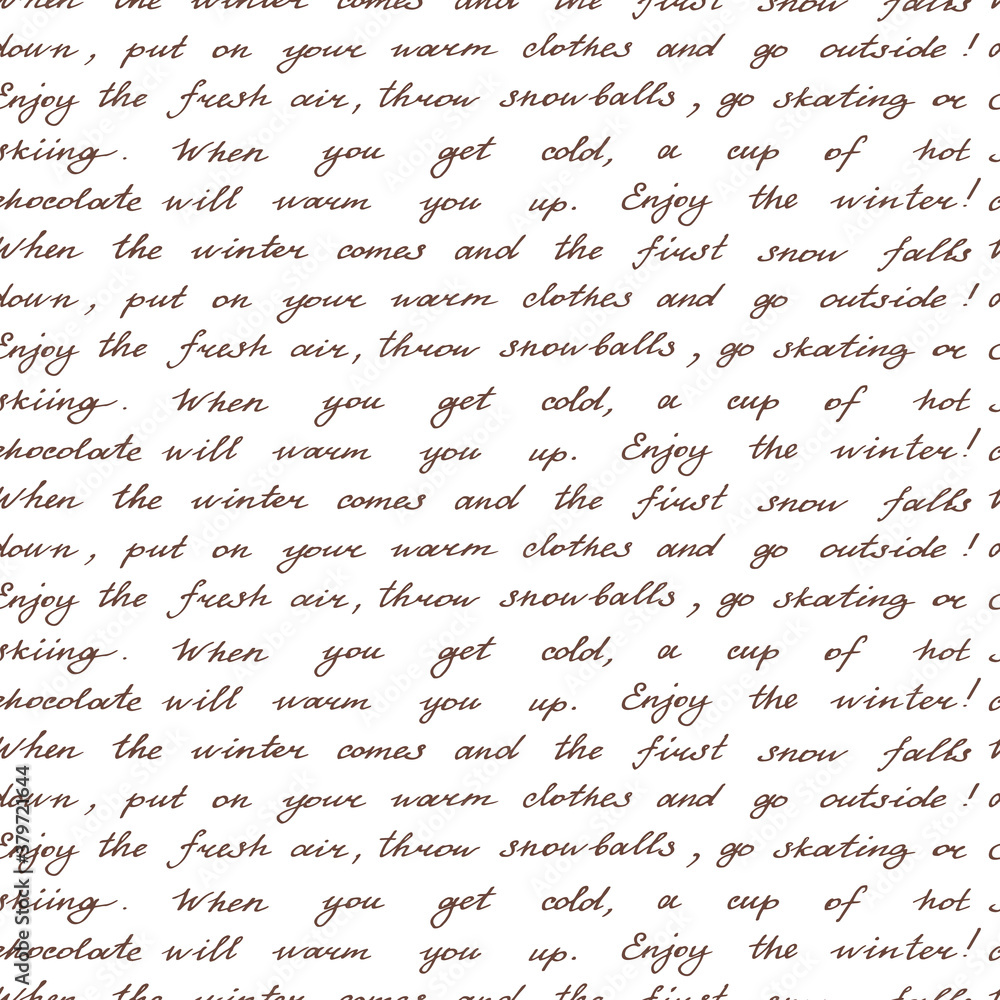 When the winter comes and the first snow falls
down, put on your warm clothes and go outside!
Enjoy the fresh air, throw snowballs, go skating or
skiing. When you get cold, a cup of hot
chocolate will warm you up. Enjoy the winter!
When the winter comes and the first snow falls
down, put on your warm clothes and go outside!
Enjoy the fresh air, throw snowballs, go skating or
skiing. When you get cold, a cup of hot
chocolate will warm you up. Enjoy the winter!
When the winter comes and the first snow falls
down, put on your warm clothes and go outside!
Enjoy the fresh air, throw snowballs, go skating or
skiing. When you get cold, a cup of hot
chocolate will warm you up. Enjoy the winter!
When the winter comes and the first snow falls
down, put on your warm clothes and go outside!
Enjoy the fresh air, throw snowballs, go skating or
skiing. When you get cold, a cup of hot
chocolate will warm you up. Enjoy the winter!
When the winter comes and the first snow falls
Adobe Stock | #379721644